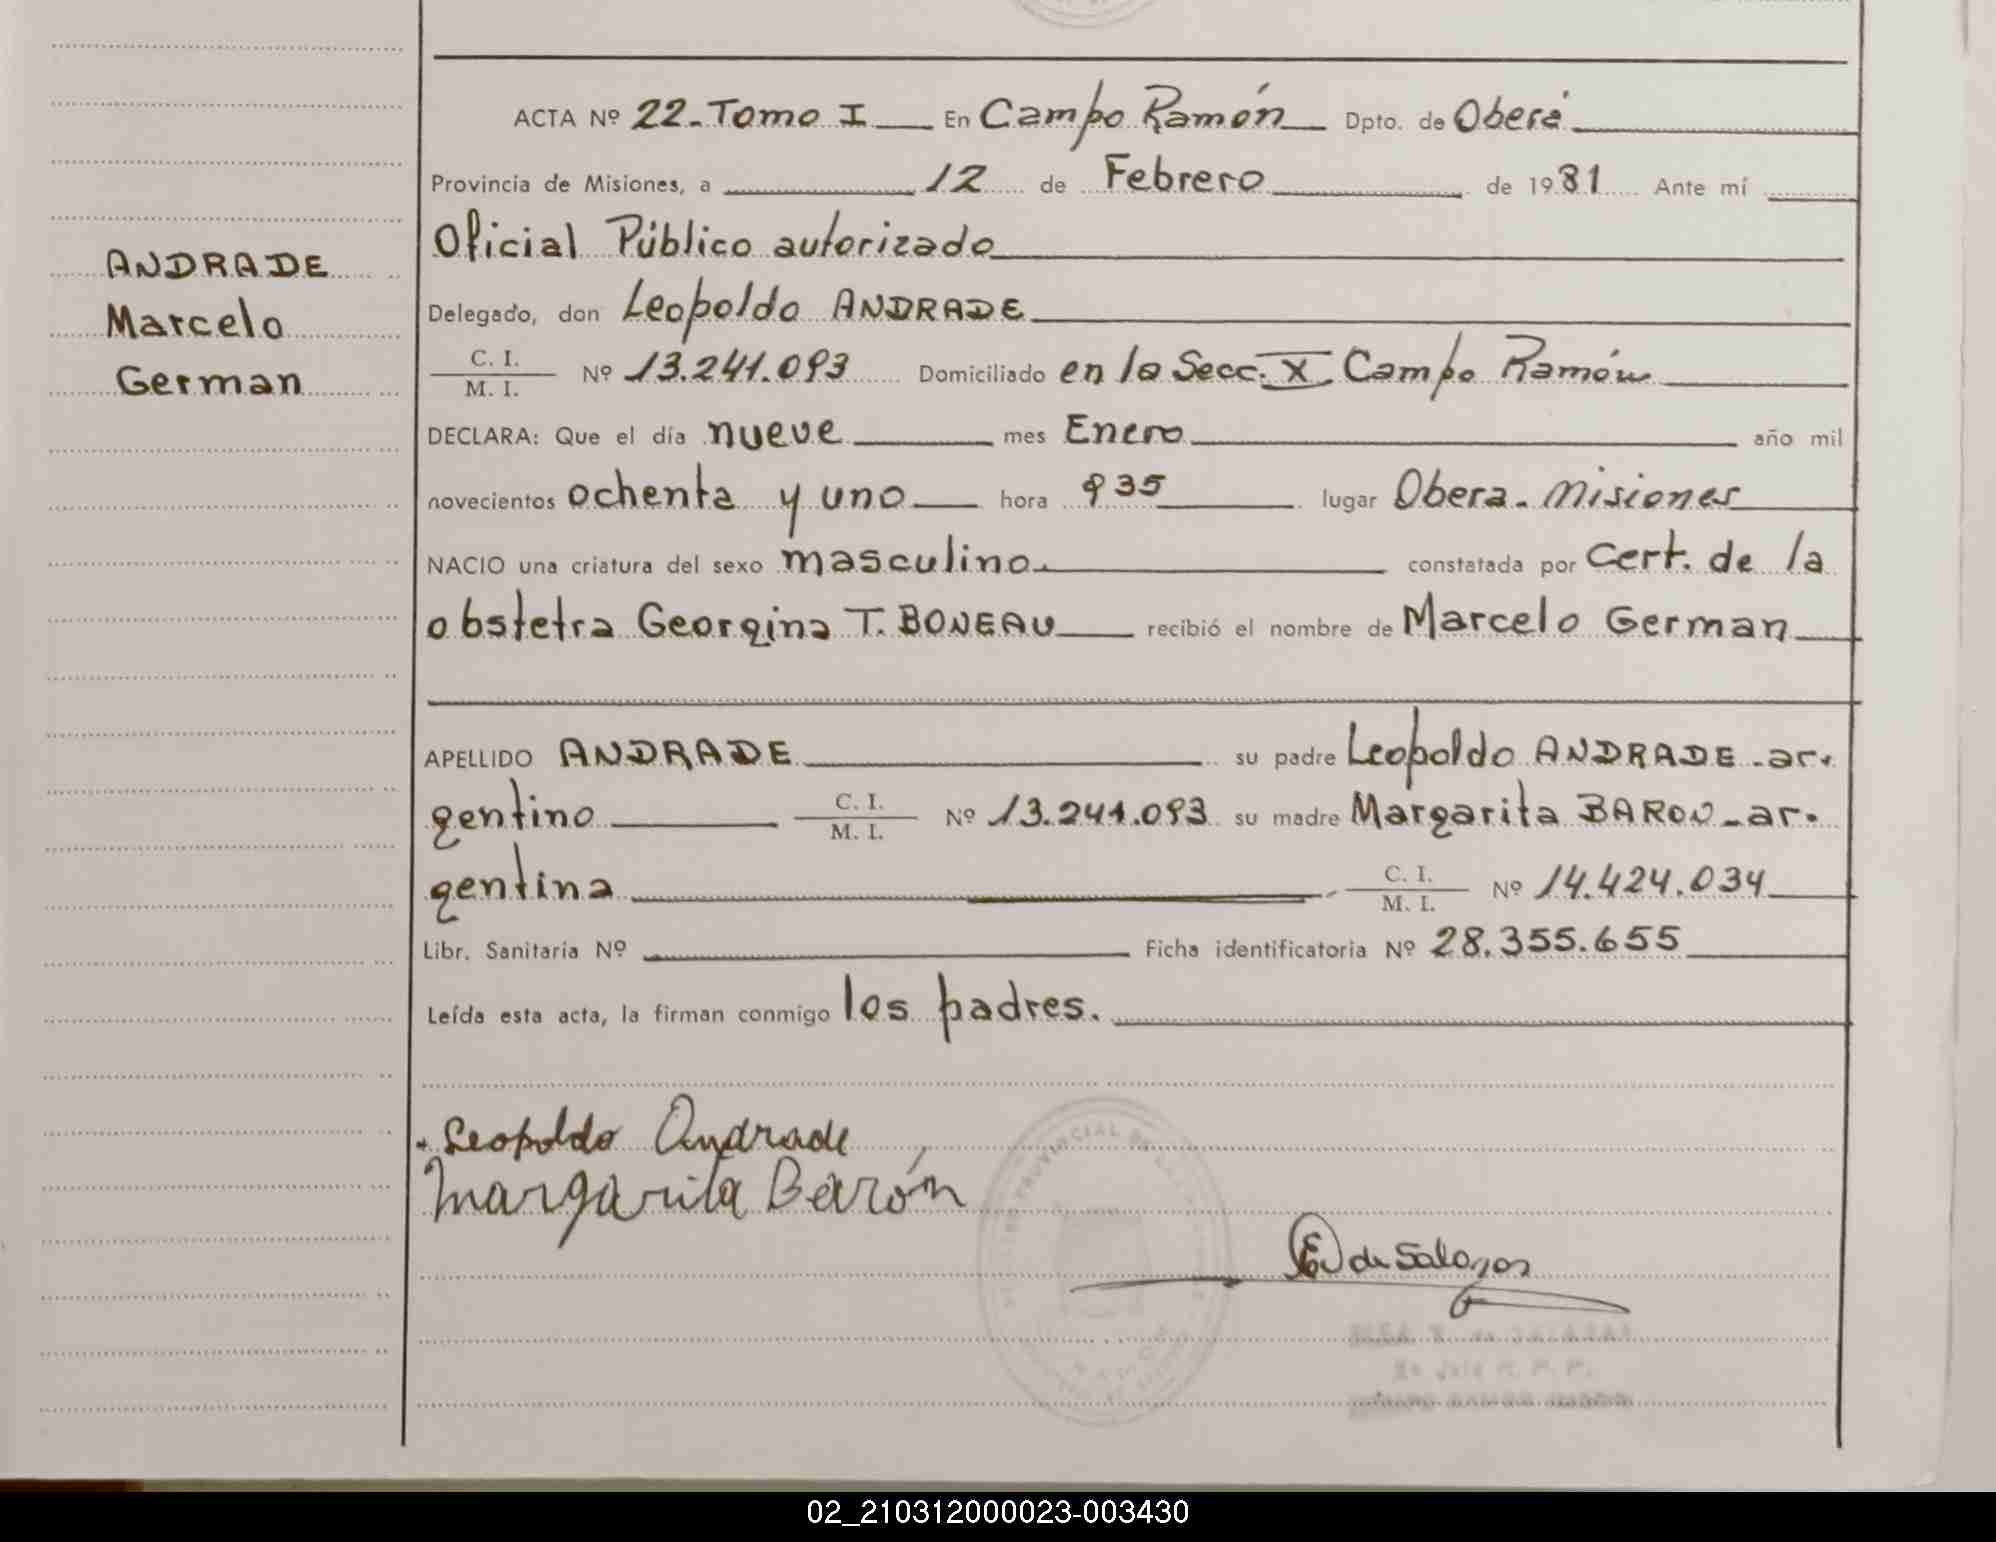 ACTA Nº 22. Tomo I En Campo Ramón Dpto. de Oberá
Provincia de Misiones, a 12 de Febrero de 1981 Ante mí
Oficial Público autorizado
ANDRADE
Marcelo
German
Delegado, don Leopoldo ANDRADE
C. I. / M. I. Nº 13.241.093 Domiciliado en la Secc. X Campo Ramón
DECLARA: Que el día nueve mes Enero año mil
novecientos ochenta y uno hora 9 35 lugar Obera. Misiones
NACIO una criatura del sexo masculino constatada por Cert. de la
obstetra Georgina T. BONEAU recibió el nombre de Marcelo German
APELLIDO ANDRADE su padre Leopoldo ANDRADE - ar.
gentino C. I. / M. I. Nº 13.241.093 su madre Margarita BARON - ar.
gentina C. I. / M. I. Nº 14.424.034
Libr. Sanitaria Nº Ficha identificatoria Nº 28.355.655
Leída esta acta, la firman conmigo los padres.
Leopoldo Andrade
Margarita Barón
de Salazar
02_210312000023-003430